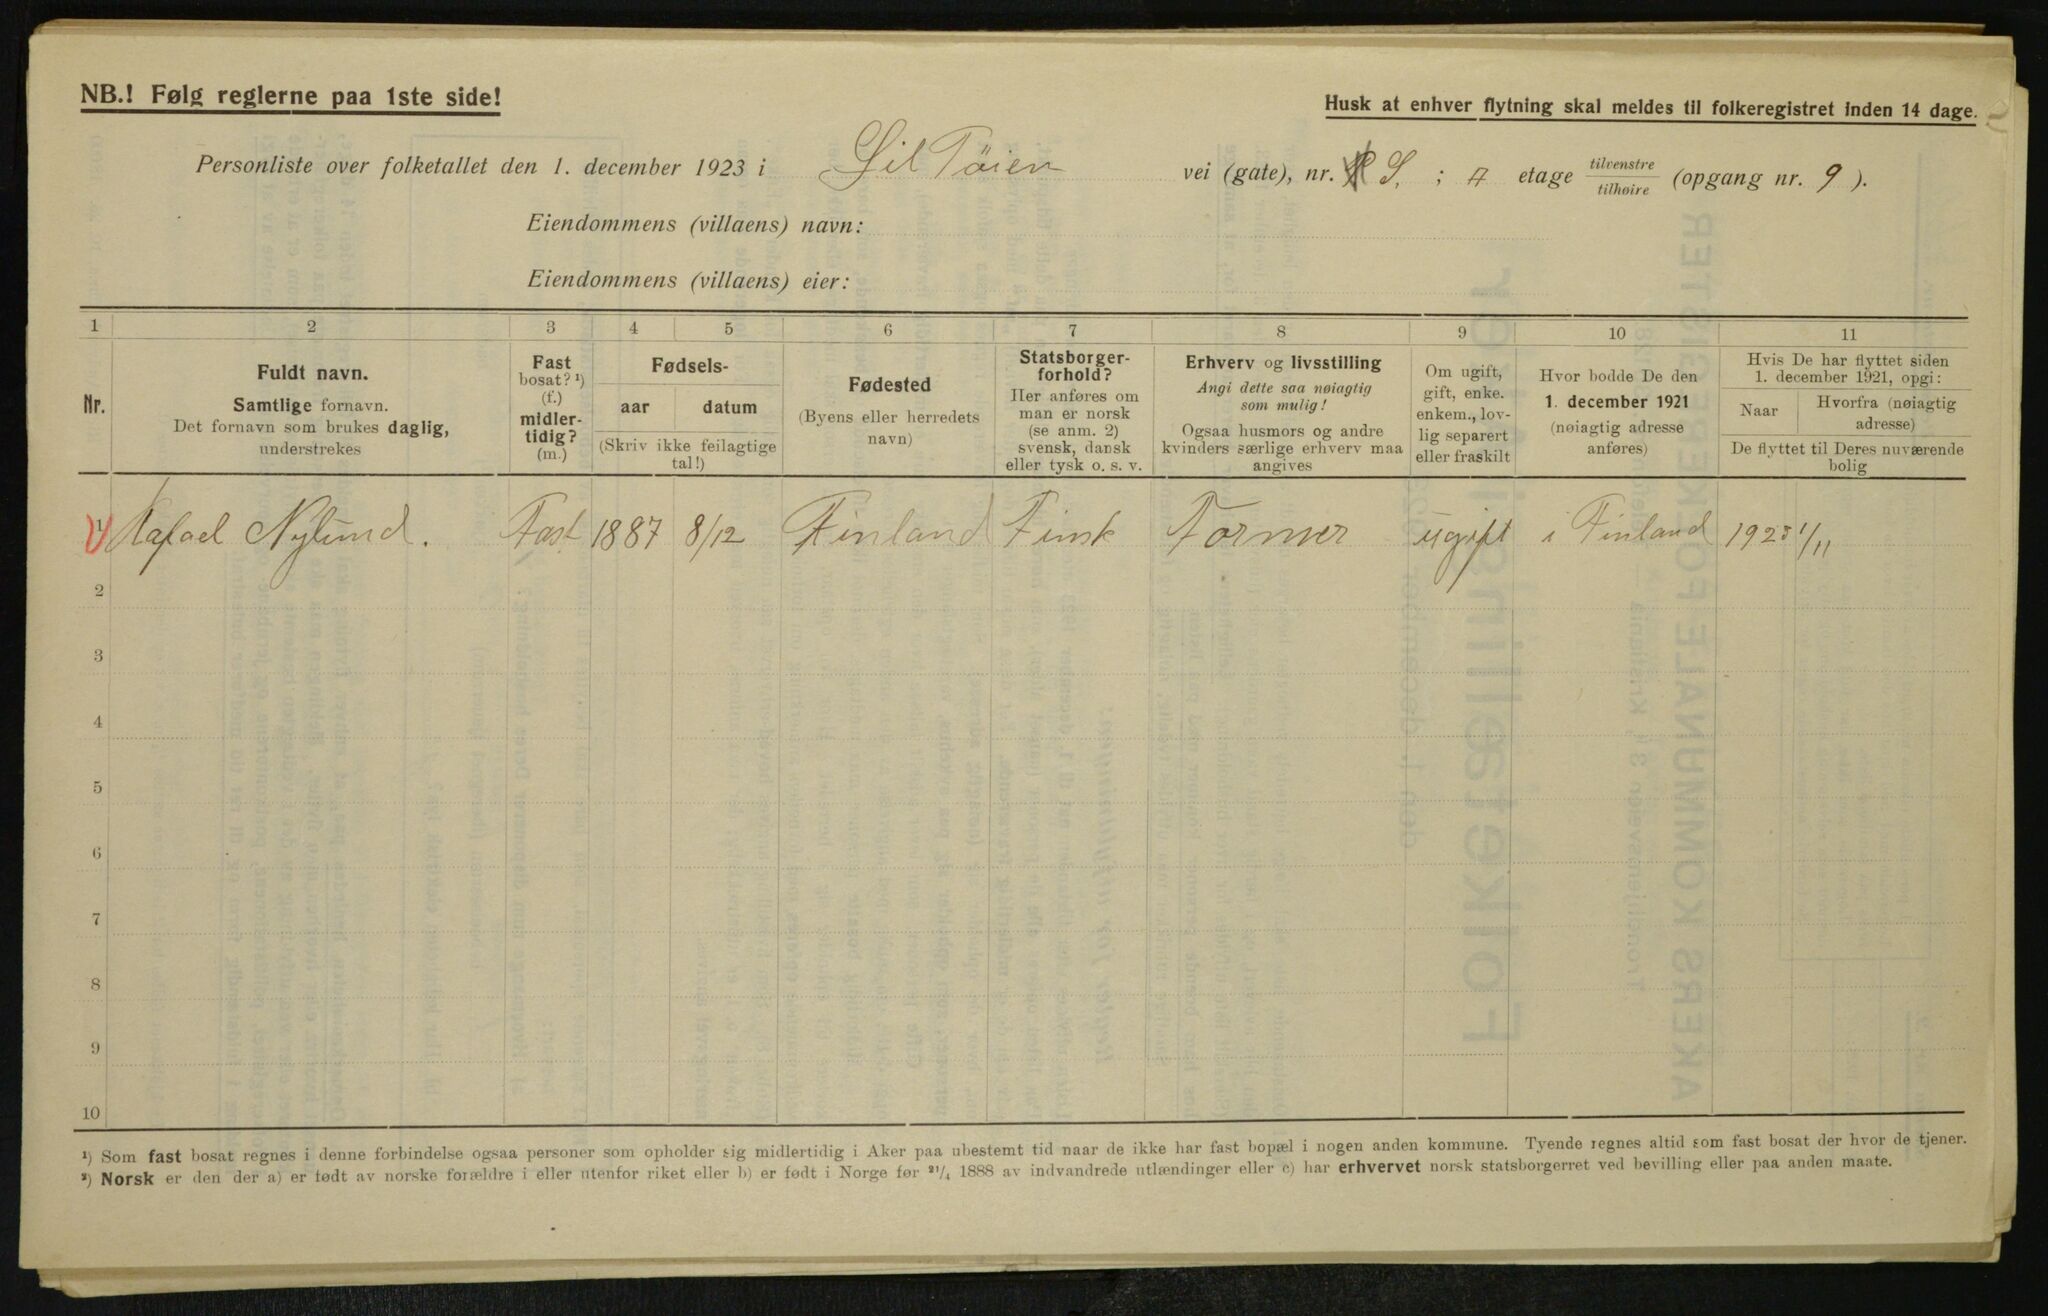 NB.! Følg reglerne paa 1ste side!
Husk at enhver flytning skal meldes til folkeregistret inden 14 dage.
Personliste over folketallet den 1. december 1923 i Lil Tøien vei (gate), nr. S. ; etage tilvenstre tilhøire (opgang nr. 9 ).
Eiendommens (villaens) navn:
Eiendommens (villaens) eier:
1 2 3 4 5 6 7 8 9 10 11
Nr.
Fuldt navn.
Samtlige fornavn.
Det fornavn som brukes daglig,
understrekes
Fast
bosat? ¹)
(f.)
midler-
tidig?
(m.)
Fødsels-
aar datum
(Skriv ikke feilagtige
tal!)
Fødested
(Byens eller herredets
navn)
Statsborger-
forhold?
Her anføres om
man er norsk
(se anm. 2)
svensk, dansk
eller tysk o. s. v.
Erhverv og livsstilling
Angi dette saa nøiagtig
som mulig!
Ogsaa husmors og andre
kvinders særlige erhverv maa
angives
Om ugift,
gift, enke.
enkem., lov-
lig separert
eller fraskilt
Hvor bodde De den
1. december 1921
(nøiagtig adresse
anføres)
Hvis De har flyttet siden
1. december 1921, opgi:
Naar
Hvorfra (nøiagtig
adresse)
De flyttet til Deres nuværende
bolig
1 Rafael Nylund. Fast 1887 8/12 Finland Finsk Former ugift i Finland 1923 1/11
2
3
4
5
6
7
8
9
10
¹) Som fast bosat regnes i denne forbindelse ogsaa personer som opholder sig midlertidig i Aker paa ubestemt tid naar de ikke har fast bopæl i nogen anden kommune. Tyende regnes altid som fast bosat der hvor de tjener.
²) Norsk er den der a) er født av norske forældre i eller utenfor riket eller b) er født i Norge før ²¹/₄ 1888 av indvandrede utlændinger eller c) har erhvervet norsk statsborgerret ved bevilling eller paa anden maate.